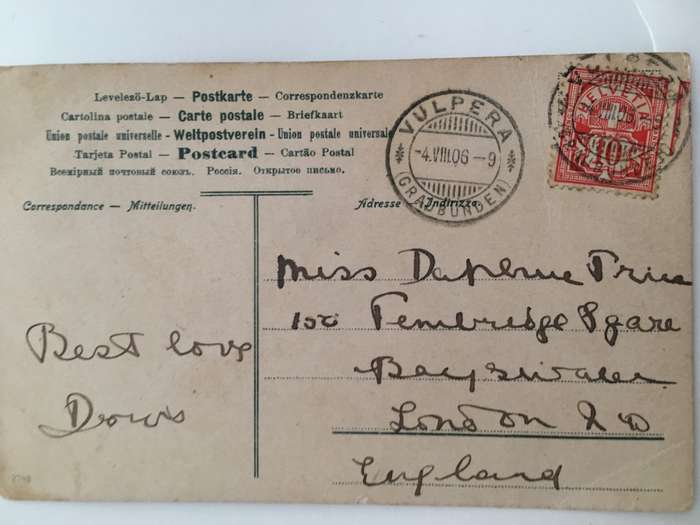 Levelezö-Lap — Postkarte — Correspondenzkarte
Cartolina postale — Carte postale — Briefkaart
Union postale universelle — Weltpostverein — Union postale universale
Tarjeta Postal — Postcard — Cartão Postal
Всемірный почтовый союзъ. Россія. Открытое письмо.
Correspondance — Mitteilungen.
Adresse — Indirizzo.
VULPERA
-4.VIII.06-9
(GRAUBÜNDEN)
HELVETIA
10
Miss Daphne
Pembridge Sqare
Bayswater
London
England
Best love
Doris